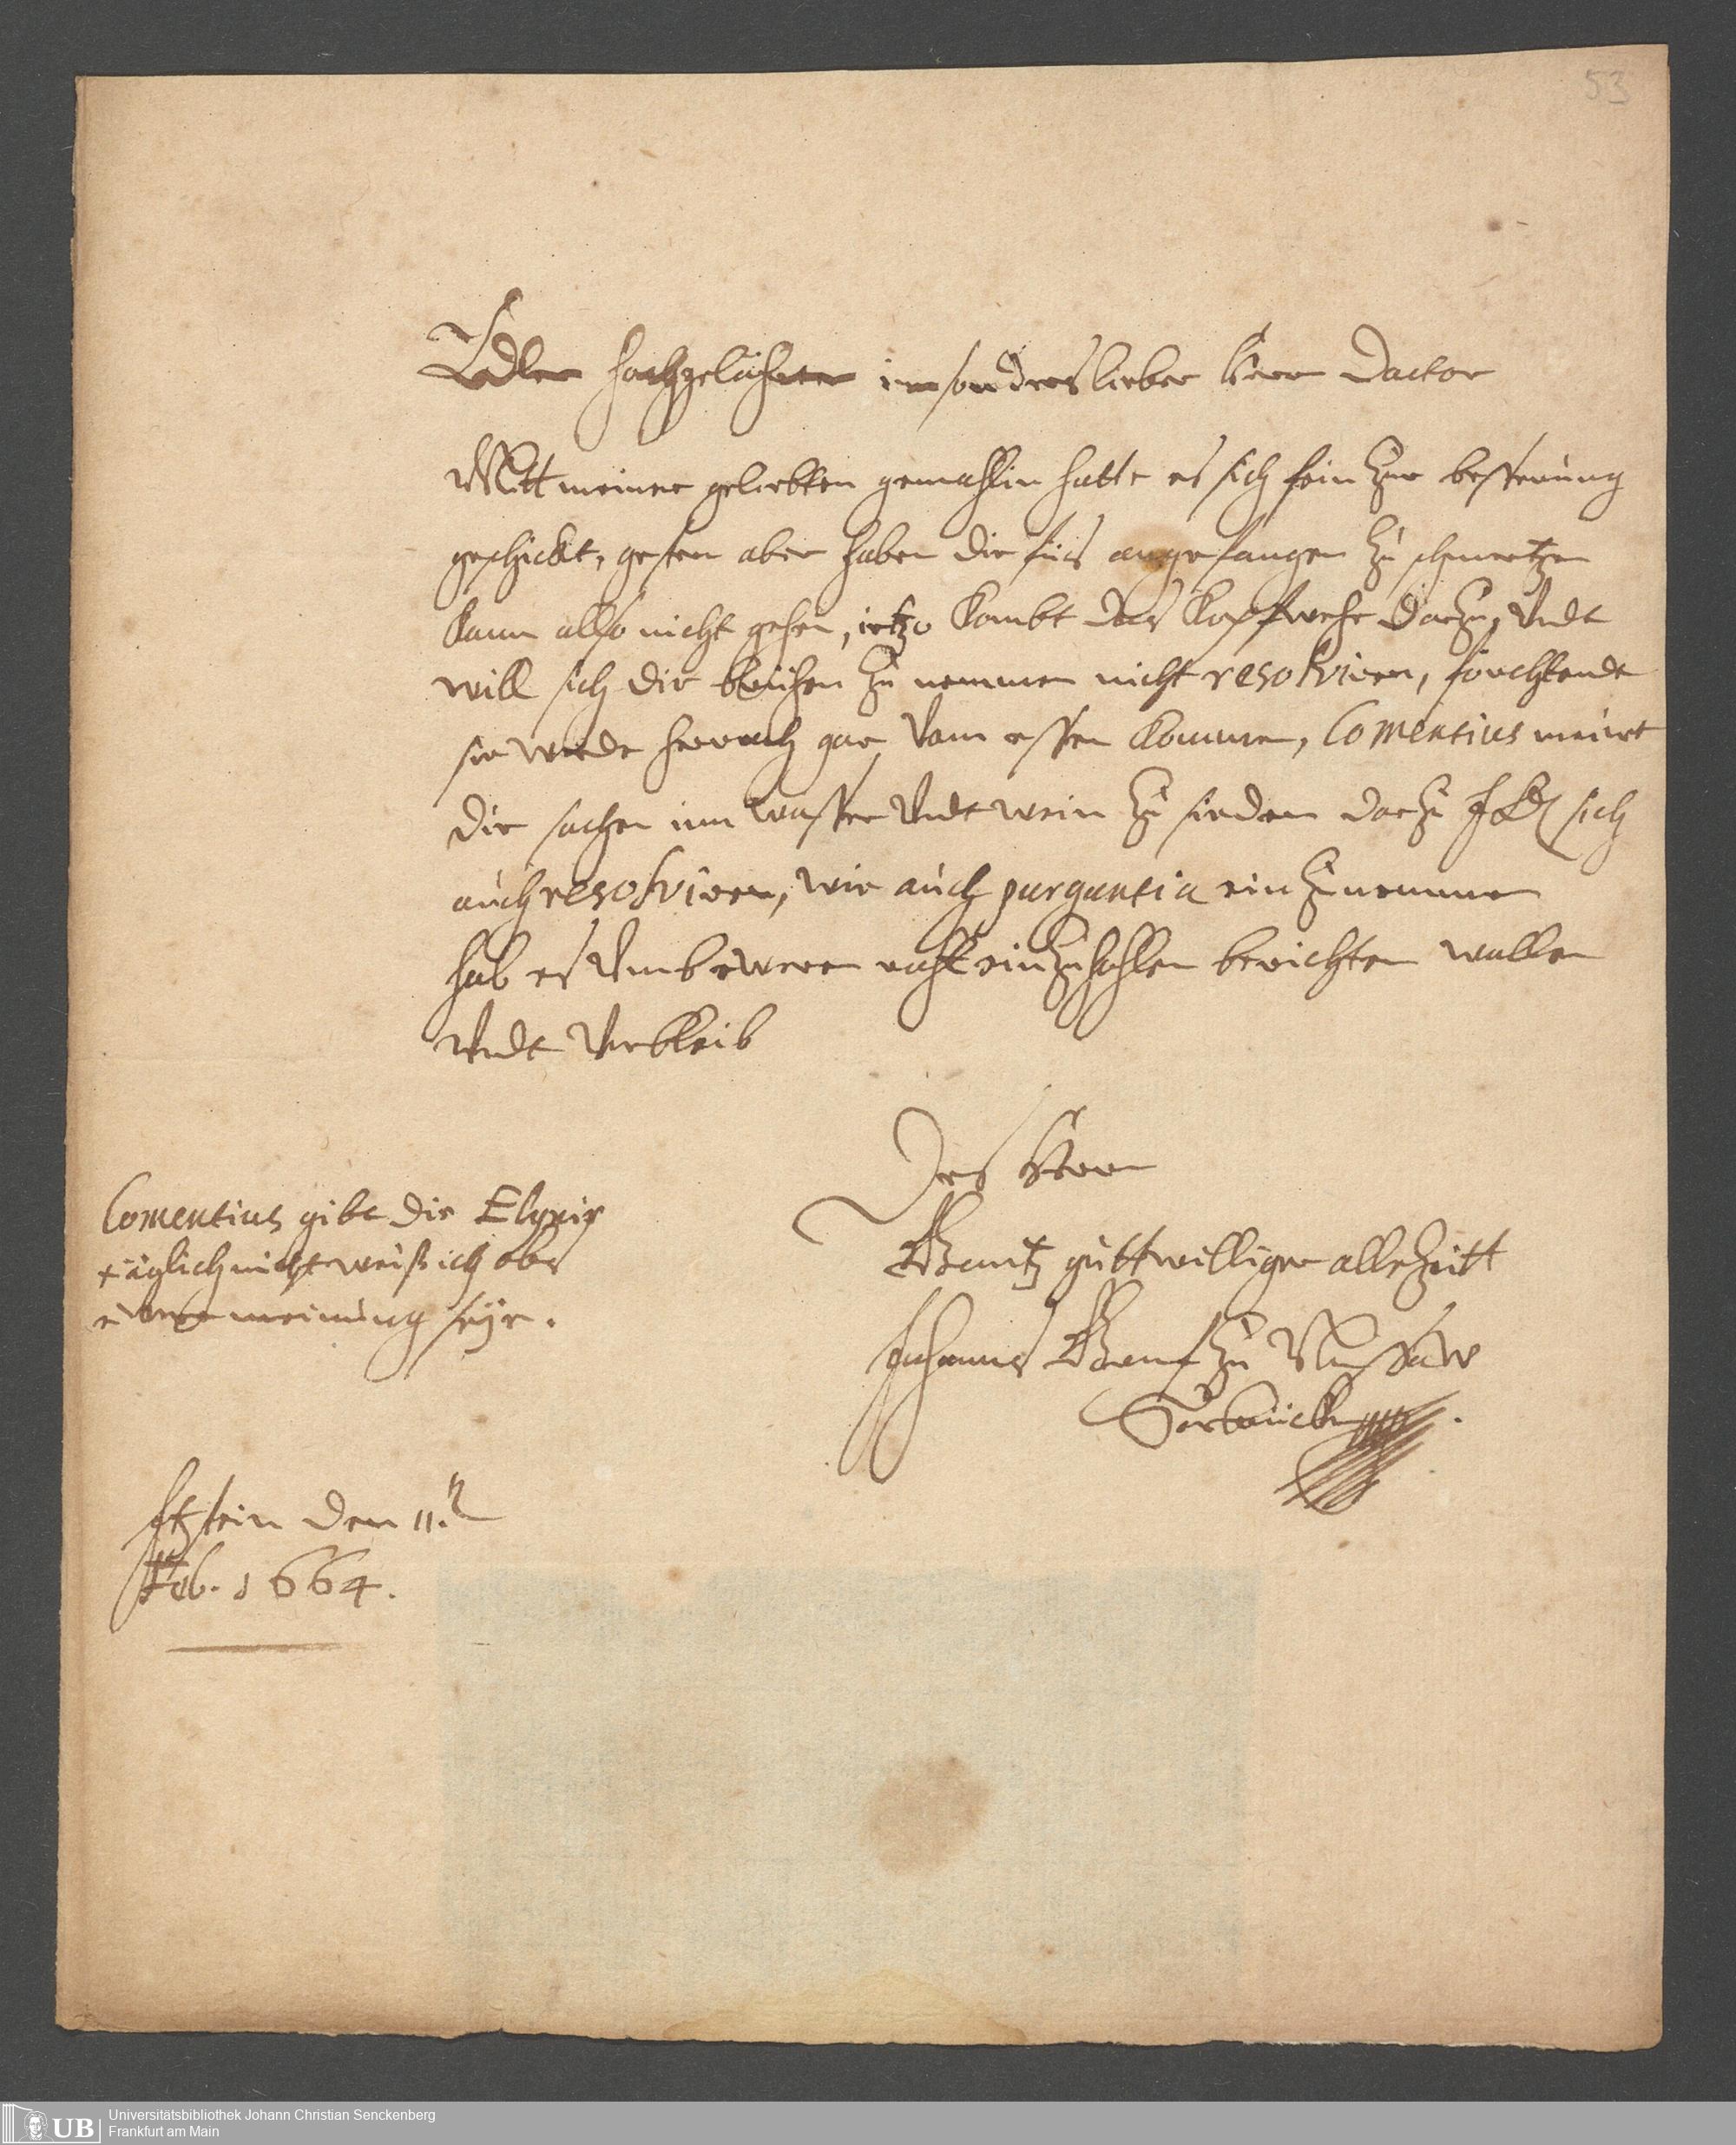 53
Edler hochgelährter insonders lieber Herr Doctor
Mitt meiner geliebten gemahlin hatte es sich fein zur besserung
geschickt, gestern aber haben die füs angefangen zu schmertzen
kann also nicht gehen, ietzo kombt das kopfwehe darzu, undt
will sich die brühen zu nemmen nicht resolviren, förchtende
sie werde hernach gar vom essen kommen, Comentius meint
die sachen inn wasser undt wein zu sieden darzu sich
auch resolviren, wie auch purgantia ein zu nemmen
hab es umb ewern raht einzuhohlen berichten wollen
undt verbleib
Des Herrn
Gantz guttwilliger allezeitt
Johannes Graf zu Nassaw
Sarbrücken
Comentius gibt die Elixir
täglich nicht weiß ich obs
ewere meinung seye.
Itzstein den 11.
Feb. 1664.
UB
Universitätsbibliothek Johann Christian Senckenberg
Frankfurt am Main